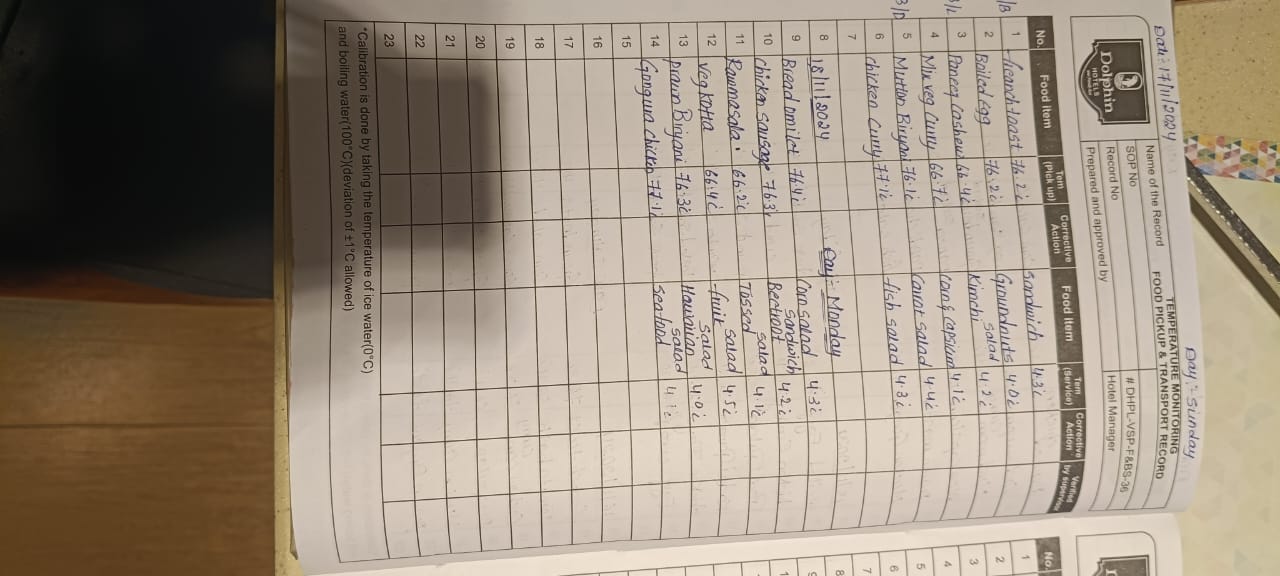 Date:- 17/11/2024
Day:- Sunday
Dolphin
HOTELS
Name of the Record
TEMPERATURE MONITORING
FOOD PICKUP & TRANSPORT RECORD
SOP No
# DHPL-VSP-F&BS-36
Record No
Prepared and approved by
Hotel Manager
No. Food Item Tem (Pick up) Corrective Action Food Item Tem (Service) Corrective Action Verified by supervisor
1 franch toast 76.2°c Sandwich 4.3°c
2 Boiled egg 76.2°c Groundnuts salad 4.0°c
3 Paneer Cashew 66.4°c Kimchi 4.2°c
4 Mix veg Curry 66.7°c Corn & capsium 4.1°c
5 Mutton Biryani 76.1°c Carrot salad 4.4°c
6 chicken Curry 77.1°c fish salad 4.3°c
7
8 18/11/2024 Day:- Monday
9 Bread omilat 76.4°c Corn salad sandwich 4.3°c
10 chicken sausage 76.3°c Beetroot salad 4.2°c
11 Raumasala 66.2°c Tossed salad 4.1°c
12 veg kofta 66.4°c fruit salad 4.5°c
13 prawn Biryani 76.3°c Hawaiian salad 4.0°c
14 Gongura chicken 77.1°c seafood 4.1°c
15
16
17
18
19
20
21
22
23
*Calibration is done by taking the temperature of ice water(0°C)
and boiling water(100°C)(deviation of ±1°C allowed)
No.
1
2
3
4
5
6
7
8